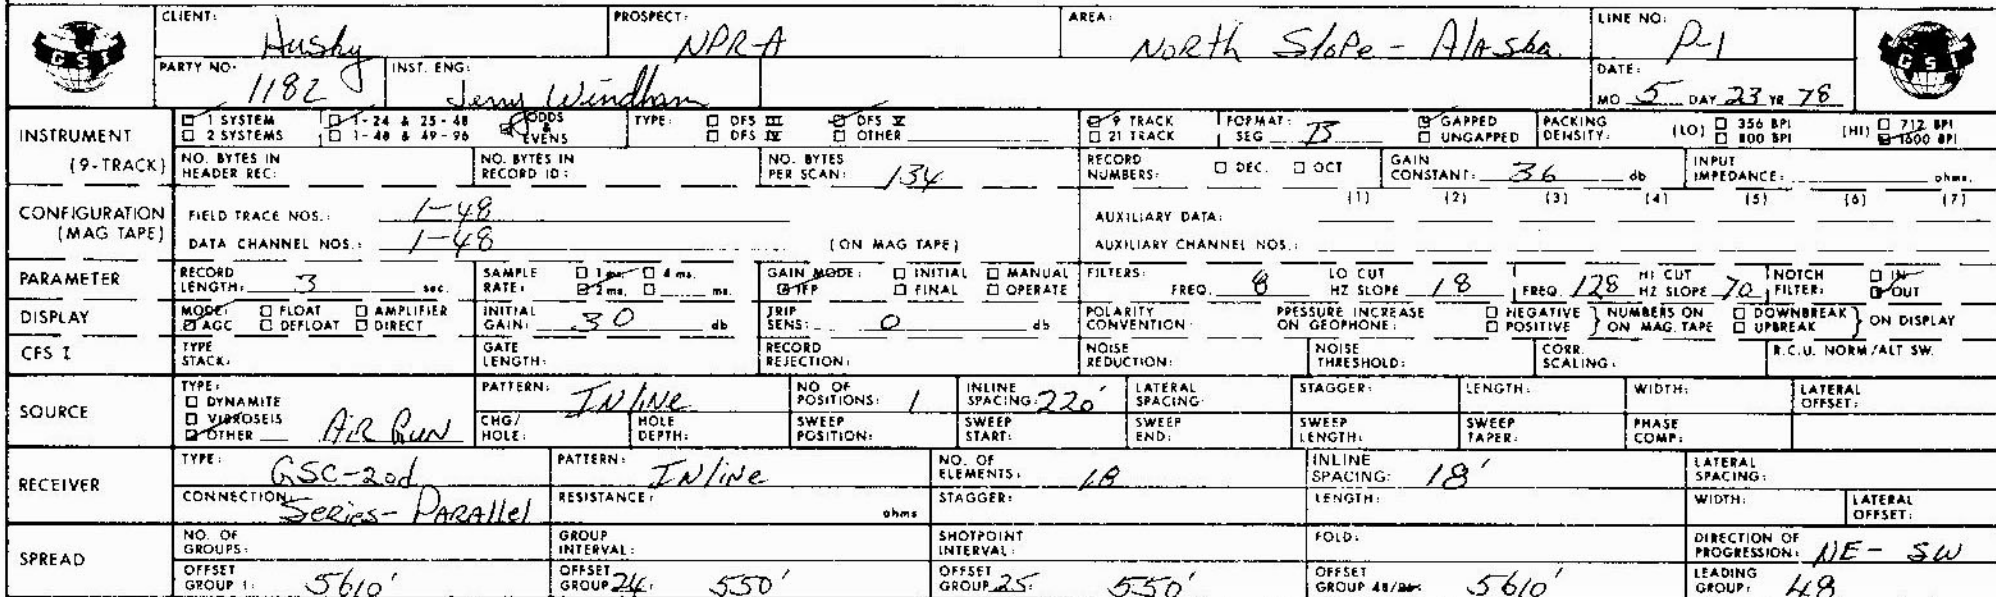 CLIENT: Husky PROSPECT: NPR-A AREA: North Slope - Alaska LINE NO: P-1
GSI GSI
PARTY NO. 1182 INST. ENG: Jerry Windham DATE: MO 5 DAY 23 YR 78
INSTRUMENT (9-TRACK)
1 SYSTEM 1-24 & 25-48 ODDS & EVENS TYPE: DFS III DFS V 9 TRACK FORMAT: SEG B GAPPED PACKING DENSITY: (LO) 356 BPI (HI) 712 BPI
2 SYSTEMS 1-48 & 49-96 DFS IV OTHER 21 TRACK UNGAPPED 800 BPI 1600 BPI
NO. BYTES IN HEADER REC: NO. BYTES IN RECORD ID: NO. BYTES PER SCAN: 134 RECORD NUMBERS: DEC. OCT GAIN CONSTANT: 36 db INPUT IMPEDANCE: ohms.
CONFIGURATION (MAG TAPE)
FIELD TRACE NOS.: 1-48 AUXILIARY DATA: (1) (2) (3) (4) (5) (6) (7)
DATA CHANNEL NOS.: 1-48 (ON MAG TAPE) AUXILIARY CHANNEL NOS.:
PARAMETER RECORD LENGTH: 3 sec. SAMPLE RATE: 1 ms. 4 ms. 2 ms. ms. GAIN MODE: INITIAL MANUAL IFP FINAL OPERATE FILTERS: FREQ. 8 LO CUT HZ SLOPE 18 FREQ. 128 HI CUT HZ SLOPE 70 NOTCH FILTER: IN OUT
DISPLAY MODE: FLOAT AMPLIFIER AGC DEFLOAT DIRECT INITIAL GAIN: 30 db TRIP SENS: 0 db POLARITY CONVENTION: PRESSURE INCREASE ON GEOPHONE: NEGATIVE POSITIVE } NUMBERS ON ON MAG. TAPE DOWNBREAK UPBREAK } ON DISPLAY
CFS I TYPE STACK: GATE LENGTH: RECORD REJECTION: NOISE REDUCTION: NOISE THRESHOLD: CORR. SCALING: R.C.U. NORM/ALT SW.
SOURCE TYPE: DYNAMITE VIBROSEIS OTHER AIR GUN
PATTERN: INline NO OF POSITIONS: 1 INLINE SPACING: 220' LATERAL SPACING: STAGGER: LENGTH: WIDTH: LATERAL OFFSET:
CHG/HOLE: HOLE DEPTH: SWEEP POSITION: SWEEP START: SWEEP END: SWEEP LENGTH: SWEEP TAPER: PHASE COMP:
RECEIVER TYPE: GSC-20d PATTERN: INline NO. OF ELEMENTS: 18 INLINE SPACING: 18' LATERAL SPACING:
CONNECTION: Series-Parallel RESISTANCE: ohms STAGGER: LENGTH: WIDTH: LATERAL OFFSET:
SPREAD NO. OF GROUPS: GROUP INTERVAL: SHOTPOINT INTERVAL: FOLD: DIRECTION OF PROGRESSION: NE - SW
OFFSET GROUP 1: 5610' OFFSET GROUP 24: 550' OFFSET GROUP 25: 550' OFFSET GROUP 48/96: 5610' LEADING GROUP: 48